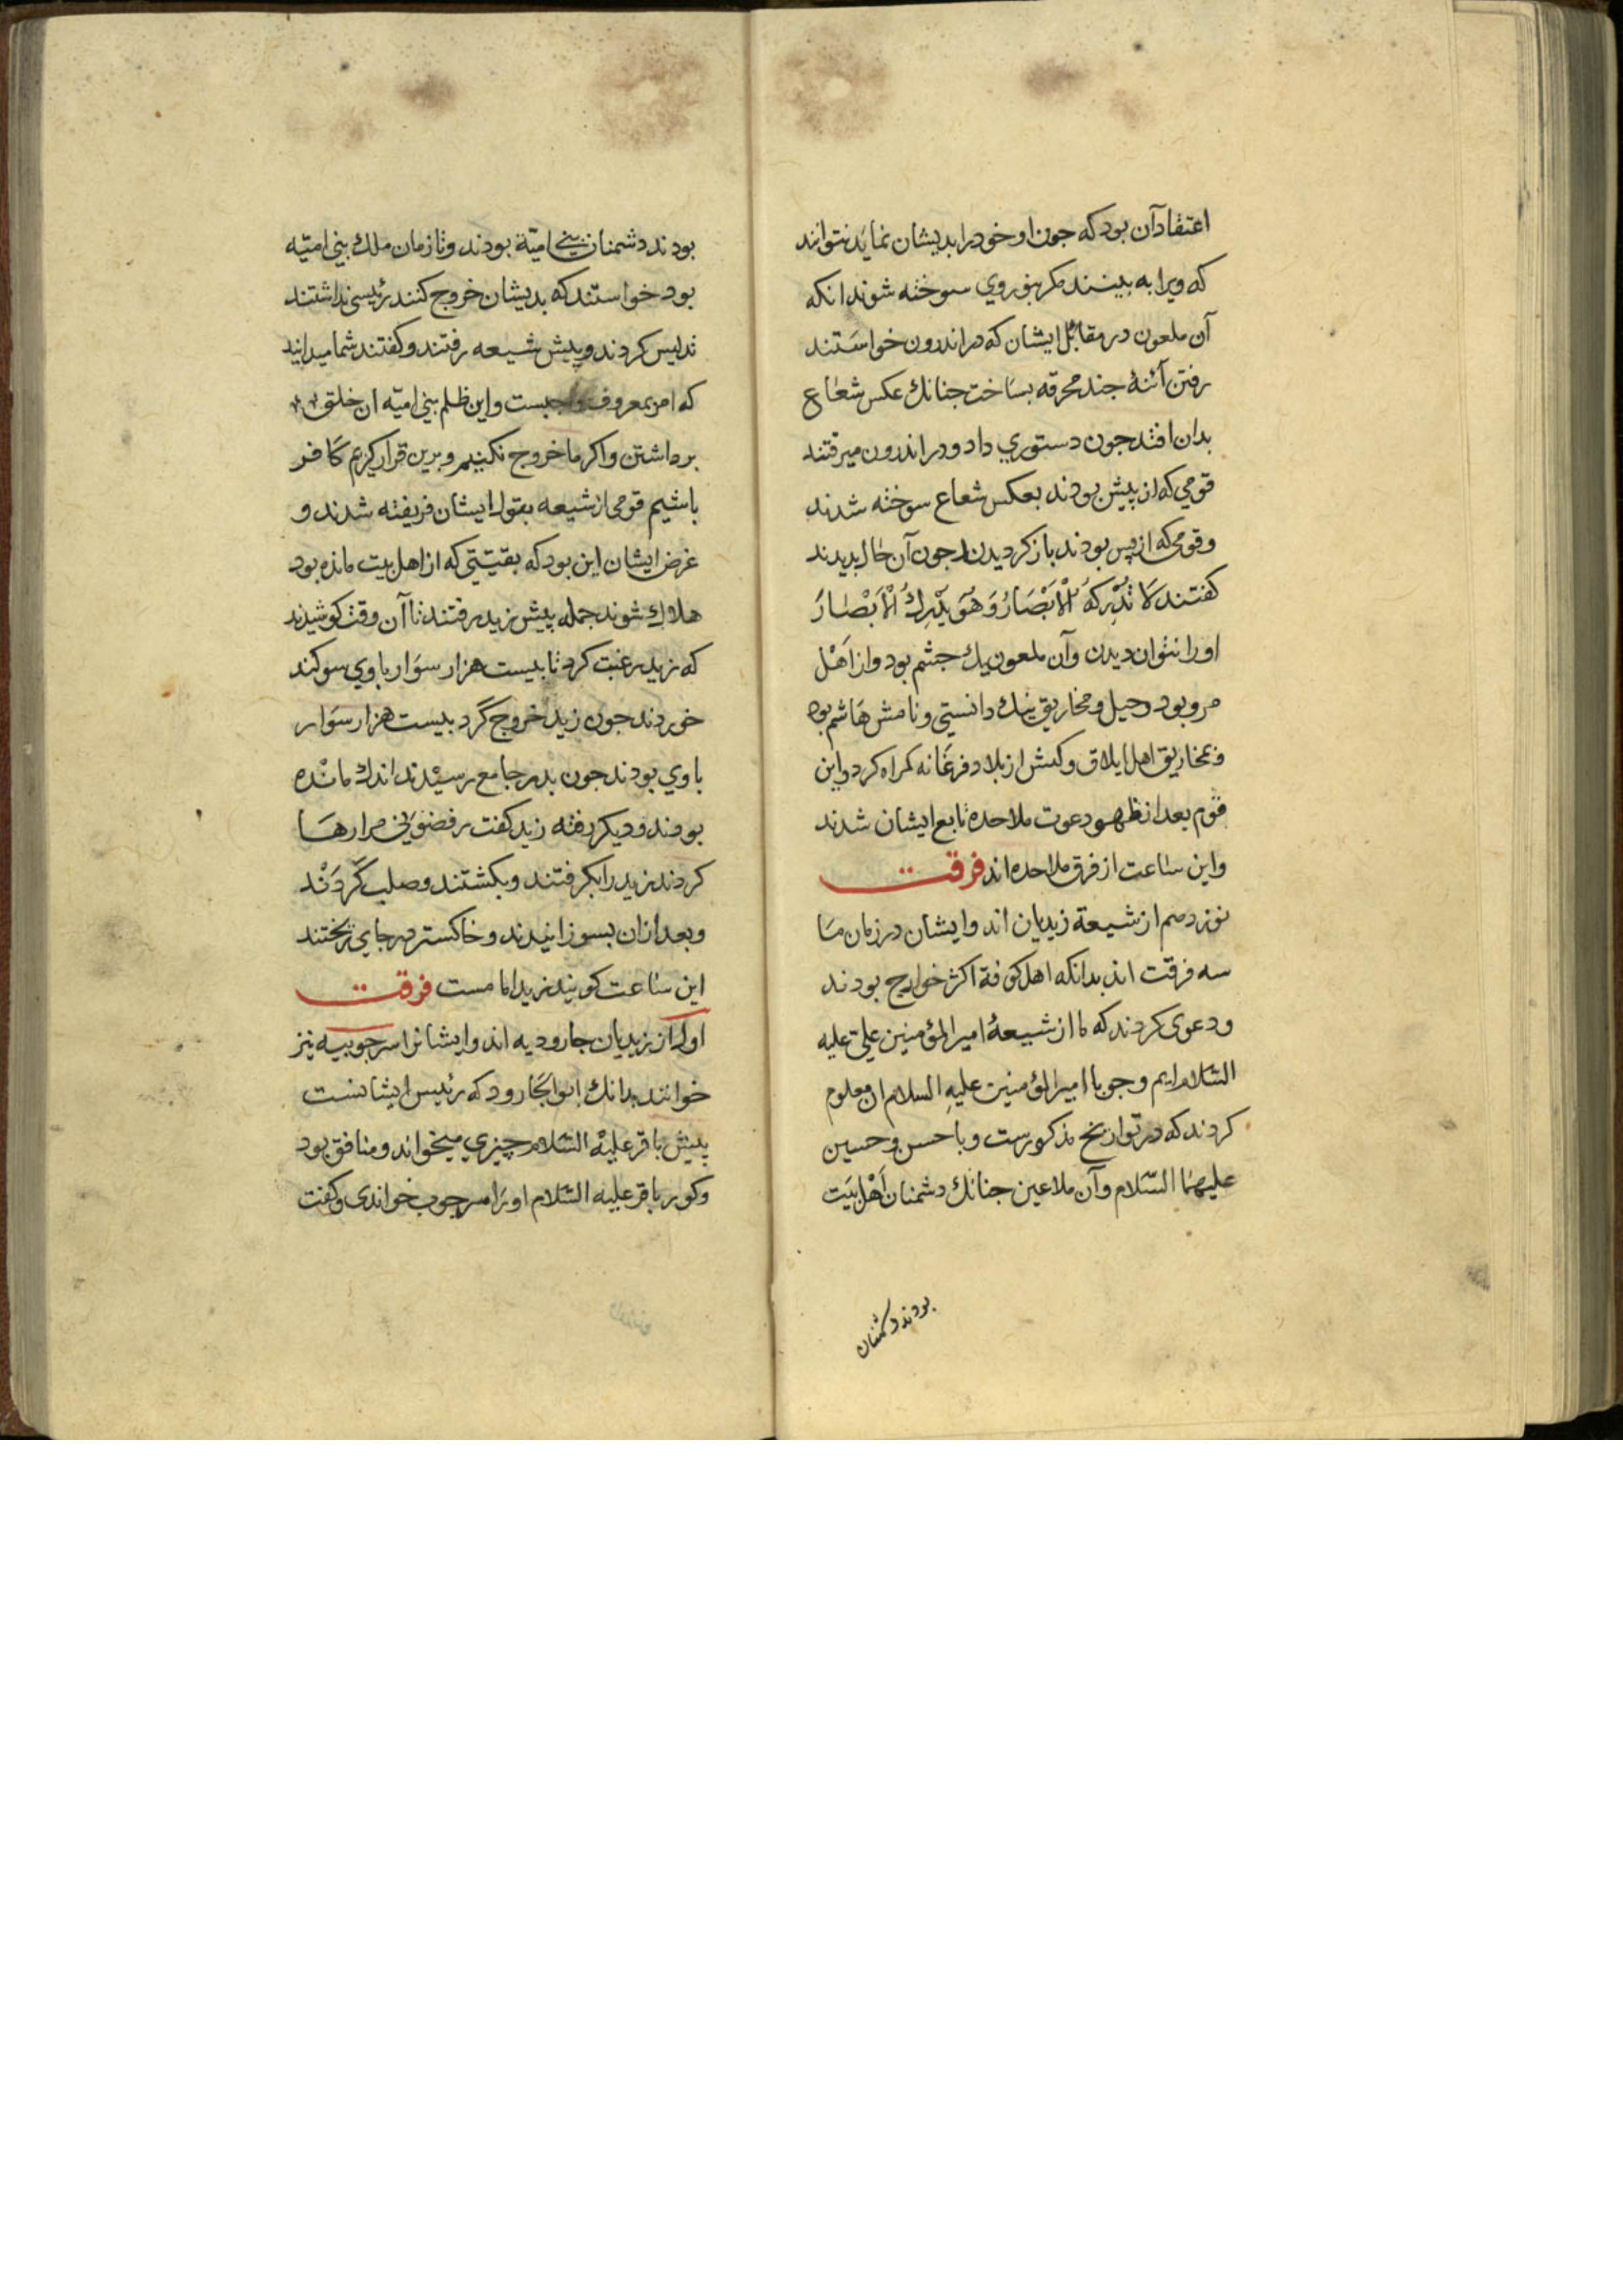 اعتقاد آن بود که جون او خود را بدیشان نماید نتوانند
که ویرا به بینند مکر بنور وی سوخته شوند انکه
آن ملعون در مقابل ایشان که در اندرون خواستند
رفتن آئنهٔ جند محرقه بساخت جنانك عکس شعاع
بدان افتد جون دستوری داد و در اندرون میرفتند
قومی که از پیش بودند بعکس شعاع سوخته شدند
و قومی که از پس بودند باز کردیدن جون آن حال بدیدند
کفتند لَا تُدْرِکهُ الْأَبْصَارُ وَهُوَ یُدْرِكُ الْأَبْصَارَ
او را نتوان دیدن و آن ملعون یك جشم بود و از اَهْل
مرو بود و حیل و مخاریق نیك دانستی و نامش هاشم بود
و بمخاریق اهل ایلاق و کش از بلاد فرغانه کمراه کرد و این
قوم بعد از ظهور دعوت ملاحده تابع ایشان شدند
و این ساعت از فرق ملاحده اند فرقت
نوزدهم از شیعة زیدیان اند و ایشان در زمان ما
سه فرقت اند بدانکه اهل کوفة اکثر خوارج بودند
و دعوی کردند که ما از شیعهٔ امیر المؤمنین علی علیه
السّلام ایم و جو با امیر المؤمنین علیهِ السلام ان معلوم
کردند که در تواریخ مذکورست و با حسن و حسین
علیهما السّلام و آن ملاعین جنانك دشمنان اَهْل بَیت
بودند دشمنان
بودند دشمنان بنی امیّة بودند و تا زمان ملك بنی امیّه
بود خواستند که بدیشان خروج کنند رئیسی نداشتند
تدلیس کردند و پیش شیعه رفتند و کفتند شما میدانید
که امر بمعروف واجبست و این ظلم بنی امیّه از خلق
برداشتن و اکر ما خروج نکنیم و برین قرار کیریم کافر
باشیم قومی از شیعه بقول ایشان فریفته شدند و
غرض ایشان این بود که بقیتی که از اهل بیت مانده بود
هلاك شوند جمله پیش زید رفتند تا آن وقت کوشیدند
که زید رغبت کرد تا بیست هزار سوَار با وی سوکند
خوردند جون زید خروج کَرد بیست هزار سوَار
با وی بودند جون بدر جامع رسیْدند اندك مانْده
بودند و دیکر رفته زید کفت رفضونی مرارها
کردند زید را بکرفتند و بکشتند و صلب کَردَنْد
و بعد از ان بسوزانیدند و خاکستر در جای ریختند
این ساعت کویند زید امامست فرقت
اول از زیدیان جارودیه اند و ایشانرا سرجوبیه نیز
خوانند بدانك ابو الجَارود که رئیس ایشانست
پیش باقر علیْه السّلام چیزی میخواند و منافق بود
و کور باقر علیه السّلام او را سرجوب خواندی و کفت